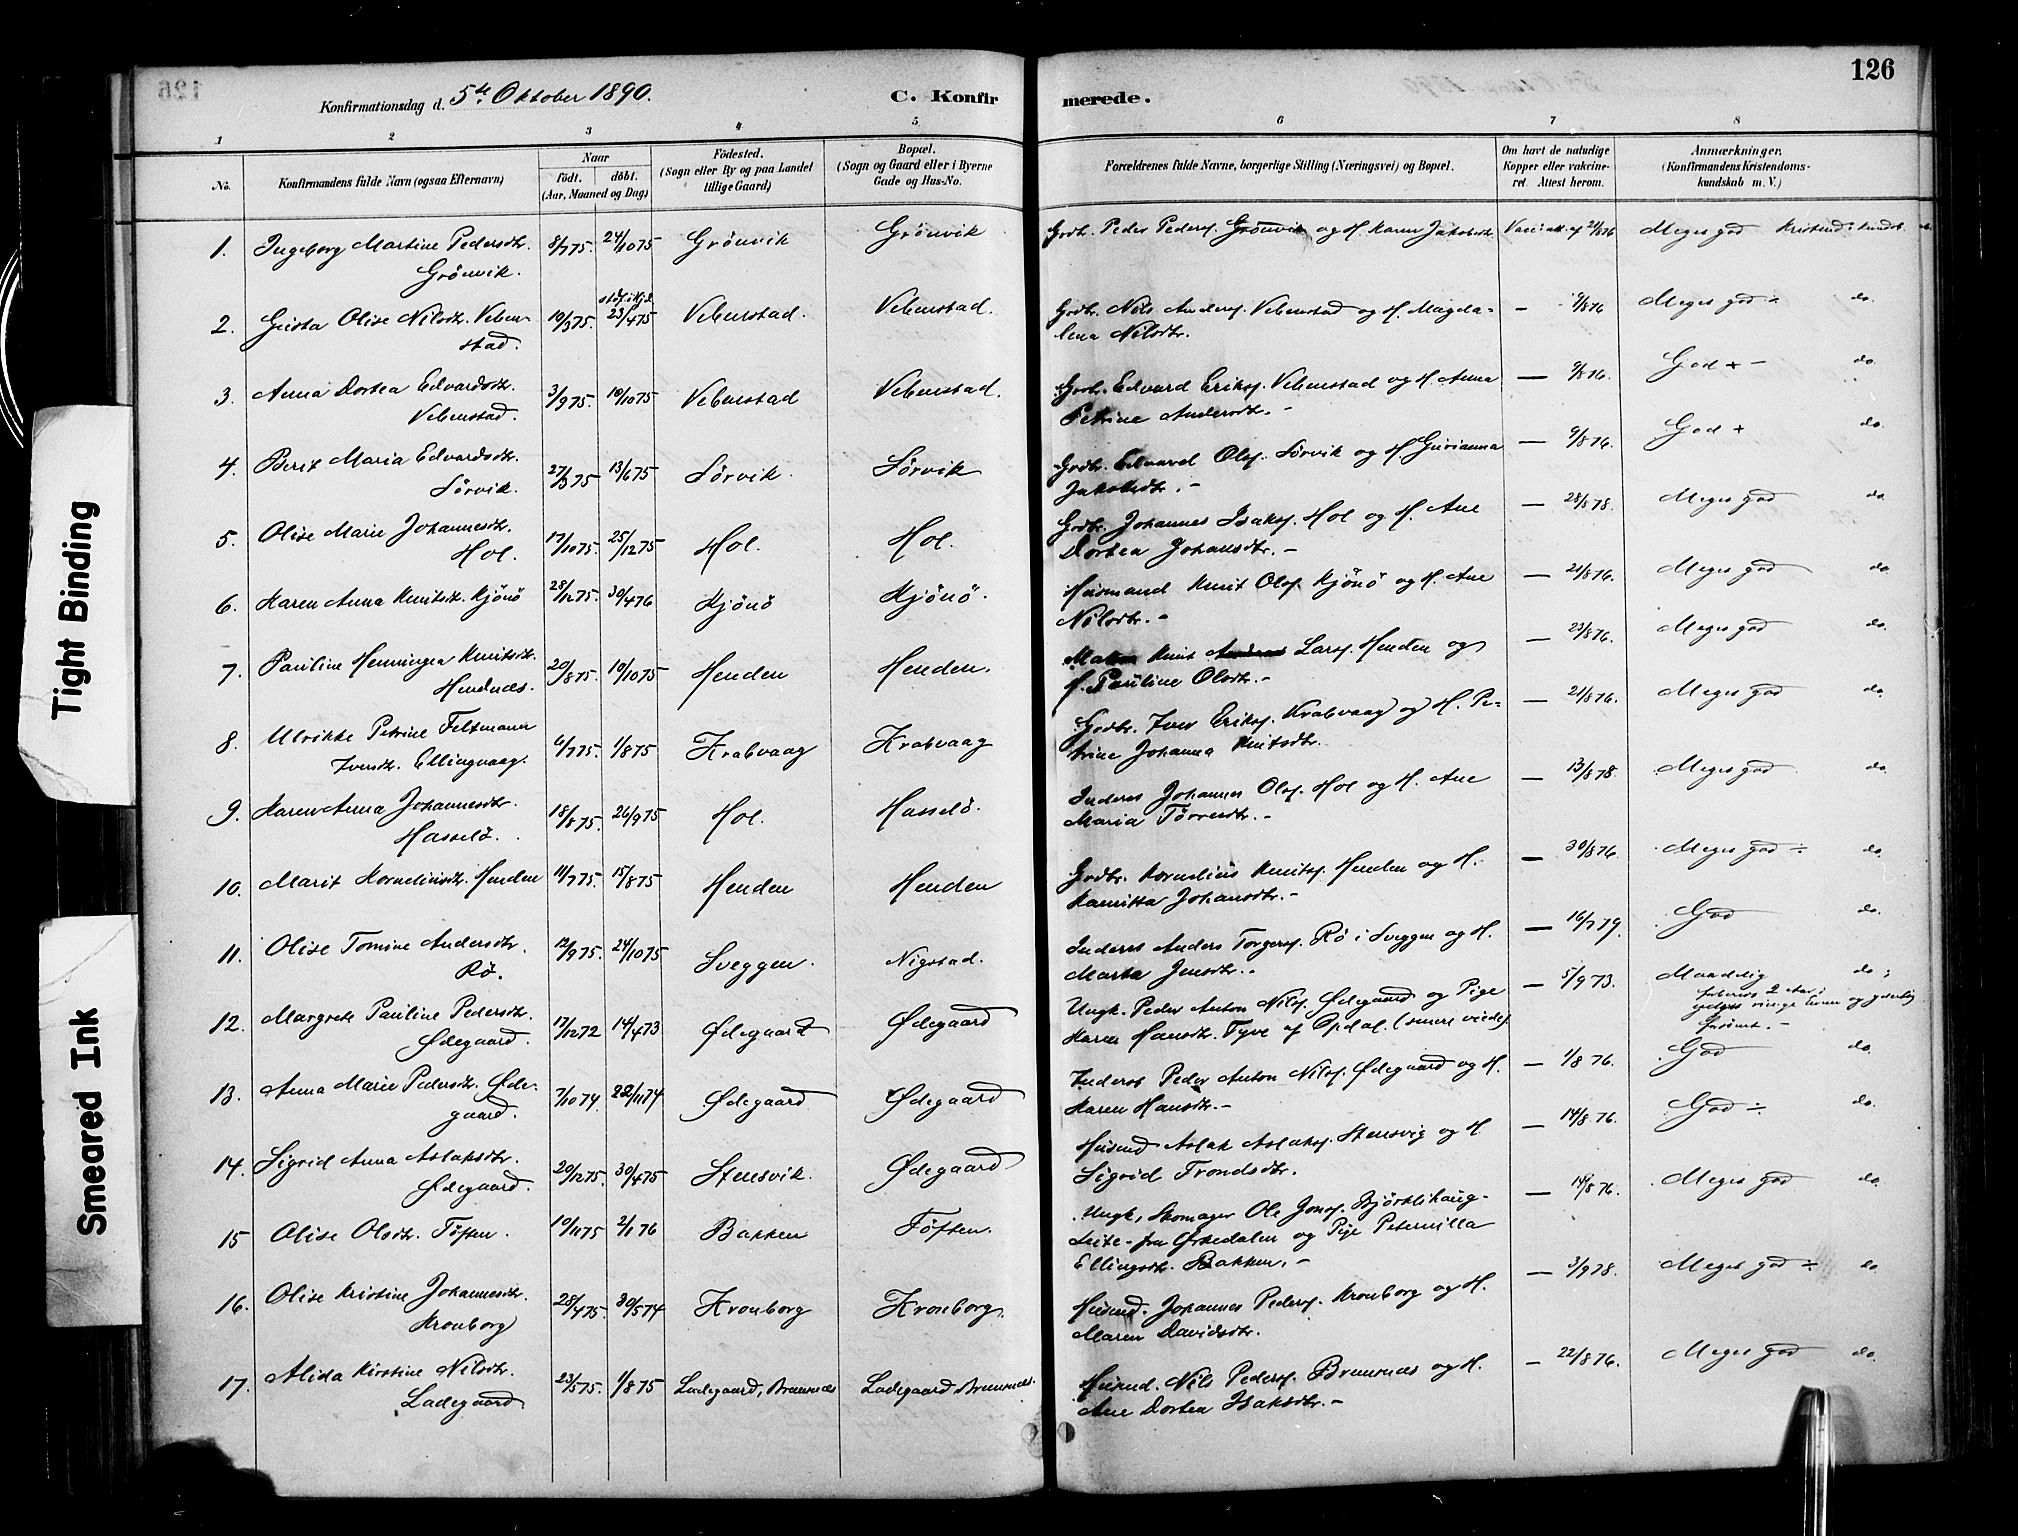 126
Konfirmationsdag d. 5te Oktober 1890.
C. Konfir
merede.
1 2 3 4 5 6 7 8
No. Konfirmandens fulde Navn (ogsaa Efternavn)
Naar
født. døbt.
(Aar, Maaned og Dag)
Födested.
(Sogn eller By og paa Landet
tillige Gaard)
Bopæl.
(Sogn og Gaard eller i Byerne
Gade og Hus-No.
Forældrenes fulde Navne, borgerlige Stilling (Næringsvei) og Bopæl.
Om havt de naturlige
Kopper eller vakcine-
ret. Attest herom.
Anmærkninger.
(Konfirmandens Kristendoms-
kundskab m. V.)
1. Ingeborg Martine Pedersdtr. 8/7 75. 24/10 75 Grönvik Grönvik Grdbr. Peder Peders. Grönvik og H. Karen Jakobsdtr. Vacc. att. af 21/8 76 Meget god Kristend: kundsk.
Grönvik.
2. Gusta Olise Nilsdtr. Veben- 10/3 75. 23/4 75 Vebenstad. Vebenstad. Grdbr. Nils Anders. Vebenstad og H. Magda- — 9/8 76 Meget god ÷ do.
stad. lena Nilsdtr.
3. Anna Dortea Edvardsdtr. 3/9 75. 10/10 75 Vebenstad Vebenstad. Grdbr. Edvard Eriks. Vebenstad og H. Anna — 9/8 76. God + — do.
Vebenstad. Petrine Andersdtr. —
4. Berit Maria Edvardsdtr. 27/3 75 13/6 75 Sörvik. Sörvik Grdbr. Edvard Ols. Sörvik og H. Gurianna — 9/8 76. God + do.
Sörvik. Jakobsdtr. —
5. Olise Marie Johannesdtr. 17/10 75. 25/12 75 Hol. Hol. Grdbr. Johannes Isaks. Hol og H. Ane — 28/8 78. Meget god do.
Hol. Dortea Johansdtr. —
6. Karen Anna Knutsdtr. Kjönö 28/12 75. 30/4 76 Kjönö Kjönö. Husmand Knut Ols. Kjönö og H. Ane — 21/8 76. Meget god do
Nilsdtr. —
7. Pauline Henningea Knutsdtr. 20/8 75. 10/10 75 Henden Henden. Knut Lars. Henden og — 23/8 76. Meget god do.
Hendnes. H. Pauline Olsdtr. —
8. Ulrikke Petrine Feltmann 6/7 75. 1/8 75 Krabvaag Krabvaag Grdbr. Iver Eriks. Krabvaag og H. Pe- — 21/8 76. Meget god do.
Iversdtr. Ellingvaag. trine Johanna Knutsdtr.
9. Karen Anna Johannesdtr. 18/8 75. 26/9 75 Hol. Hasselö. Inderst Johannes Ols. Hol og H. Ane — 13/8 78. Meget god do.
Hasselö. Maria Törresdtr. —
10. Marit Korneliusdtr. Henden 11/7 75. 15/8 75 Henden Henden Grdbr. Kornelius Knuts. Henden og H. — 30/8 76. Meget god ÷ do.
Johansdtr. —
11. Olise Tomine Andersdtr. 12/9 75. 24/10 75 Sveggen. Nigstad. Inderst Anders Torgers. Rö i Sveggen og H. — 16/7 79. God do.
Rö. Marta Jensdtr. —
12. Margrete Pauline Pedersdtr. 17/12 72 14/4 73 Ødegaard Ødegaard Ungk. Peder Anton Nils. Ødegaard og Pige 5/9 73. Maadelig do;
Ødegaard. Karen Hansdtr. Tyve af Opdal. (senere viede). 2 Aar; ringe Evner og
13. Anna Marie Pedersdtr. Øde- 7/10 74. 22/11 74 Ødegaard Ødegaard Inderst Peder Anton Nils. Ødegaard og H. — 1/8 76. God do.
gaard. Karen Hansdtr. —
14. Sigrid Anna Aslaksdtr. 20/12 75. 30/4 75 Stensvik. Ødegaard Husmd Aslak Aslaks. Stensvig og H. — 14/8 76. God ÷ do.
Ødegaard. Sigrid Trondsdtr.
15 Olise Olsdtr. Töften. 19/11 75 2/1 76 Bakken Töften. Ungk, Skomager Ole Jons. Björklihaug- — 14/8 76. Meget god do.
Leite- fra Ørkedalen og Pige Peternilla
Ellingsdtr. Bakken. —
16. Olise Kristine Johannesdtr. 28/4 75 30/5 74 Kronborg Kronborg. Husmd. Johannes Peders. Kronborg og H. — 3/9 78. Meget god ÷ do
Kronborg Maren Davidsdtr.
17. Alida Kirstine Nilsdtr. 23/5 75. 1/8 75 Ladegaard, Bremsnes Ladegaard Bremsnes. Husmd. Nils Peders. Bremsnes og H. — 22/8 76. Meget god do.
Ladegaard. Ane Dortea Isaksdtr. —
Tight Binding
Smeared Ink